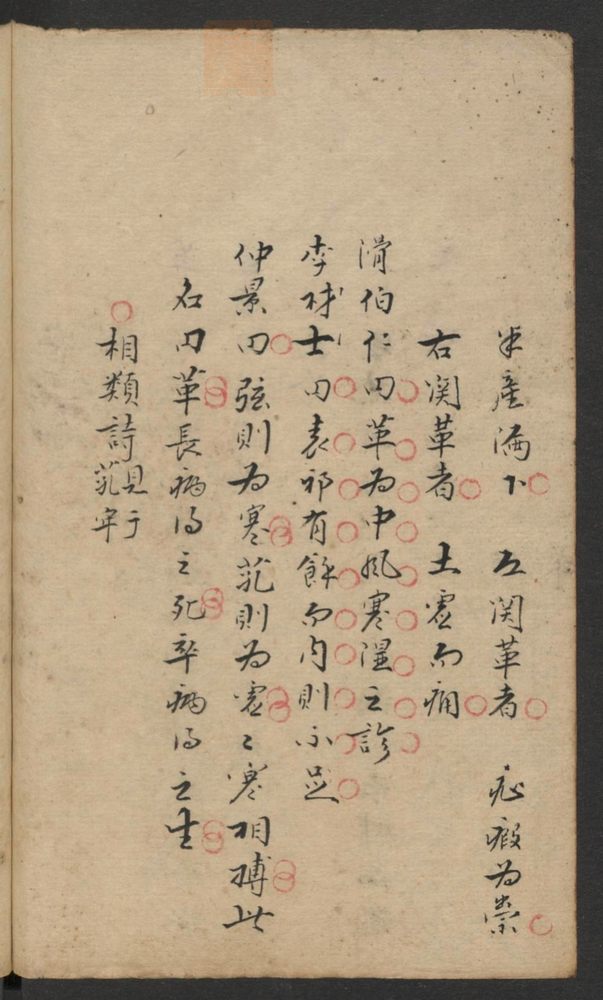 半產漏下 左関革者 疝瘕為祟
右関革者 土虛而痛
滑伯仁曰革為中風寒濕之診
李材士曰表邪有餘而内則不足
仲景曰弦則为寒芤則为虛〻寒相搏此
名曰革長病得之死卒病得之生
相類詩見于芤牢